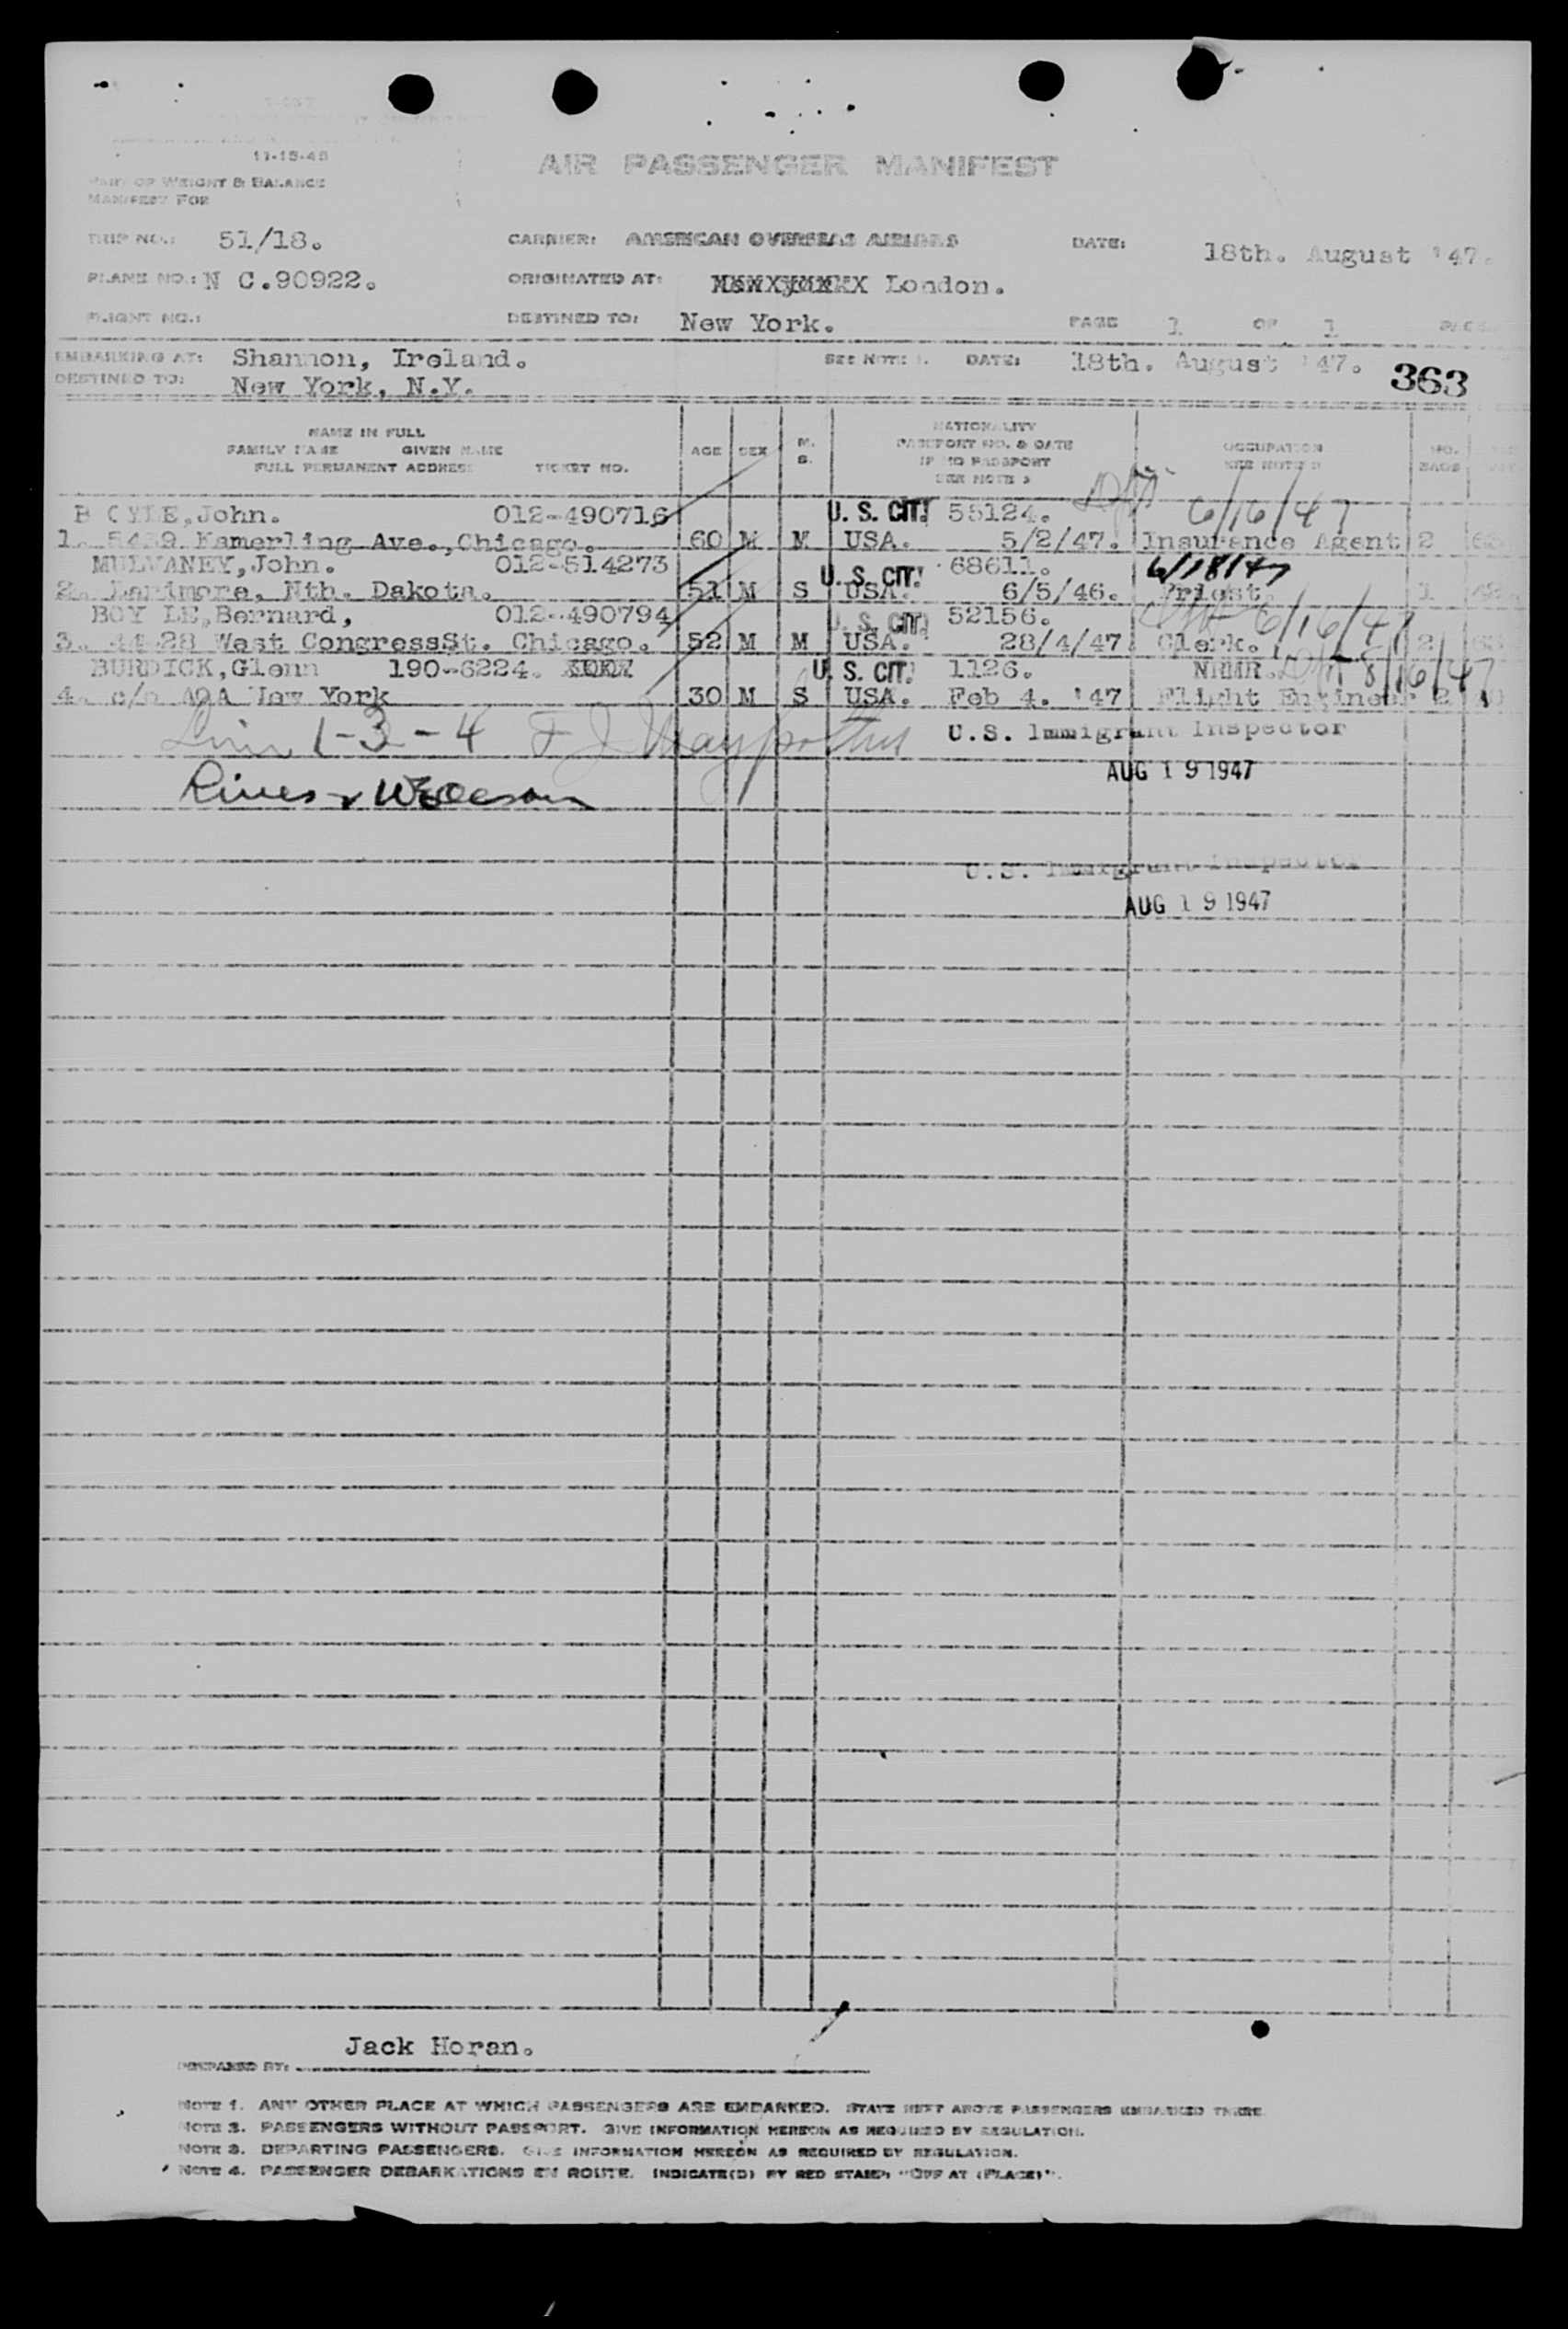 11-15-46
AIR PASSENGER MANIFEST
PART OF WEIGHT & BALANCE
MANIFEST FOR
TRIP NO.: 51/18. CARRIER: AMERICAN OVERSEAS AIRLINES DATE: 18th. August '47.
PLANE NO.: N C.90922. ORIGINATED AT: London.
FLIGHT NO.: DESTINED TO: New York. PAGE 1 OF 1
EMBARKING AT: Shannon, Ireland. SEE NOTE 1. DATE: 18th. August '47. 363
DESTINED TO: New York, N.Y.
NAME IN FULL
FAMILY NAME GIVEN NAME
FULL PERMANENT ADDRESS TICKET NO.
AGE SEX M. S.
NATIONALITY
PASSPORT NO. & DATE
IF NO PASSPORT
SEE NOTE 2
OCCUPATION
SEE NOTE 3
NO. BAGS
B OYLE,John. 012-490716 U. S. CIT. 55124. 6/16/47
1. 5439 Kamerling Ave.,Chicago. 60 M M USA. 5/2/47. Insurance Agent 2
MULVANEY,John. 012-514273 U. S. CIT. 68611. 6/18/47
2. Larimore, Nth. Dakota. 51 M S USA. 6/5/46. Priest. 1
BOY LE,Bernard, 012-490794 U. S. CIT. 52156. 6/16/47
3. 44-28 West CongressSt. Chicago. 52 M M USA. 28/4/47 Clerk. 2
BURDICK,Glenn 190-6224. U. S. CIT. 1126. NRMR. 8/16/47
4. c/o AOA New York 30 M S USA. Feb 4. '47 Flight Engineer 2
1-3-4
U.S. Immigrant Inspector
AUG 19 1947
U.S. Immigrant Inspector
AUG 19 1947
Jack Horan.
PREPARED BY:
NOTE 1. ANY OTHER PLACE AT WHICH PASSENGERS ARE EMBARKED. STATE NEXT ABOVE PASSENGERS EMBARKED THERE.
NOTE 2. PASSENGERS WITHOUT PASSPORT. GIVE INFORMATION HEREON AS REQUIRED BY REGULATION.
NOTE 3. DEPARTING PASSENGERS. GIVE INFORMATION HEREON AS REQUIRED BY REGULATION.
NOTE 4. PASSENGER DEBARKATIONS EN ROUTE. INDICATE(D) BY RED STAMP: "OFF AT (PLACE)".